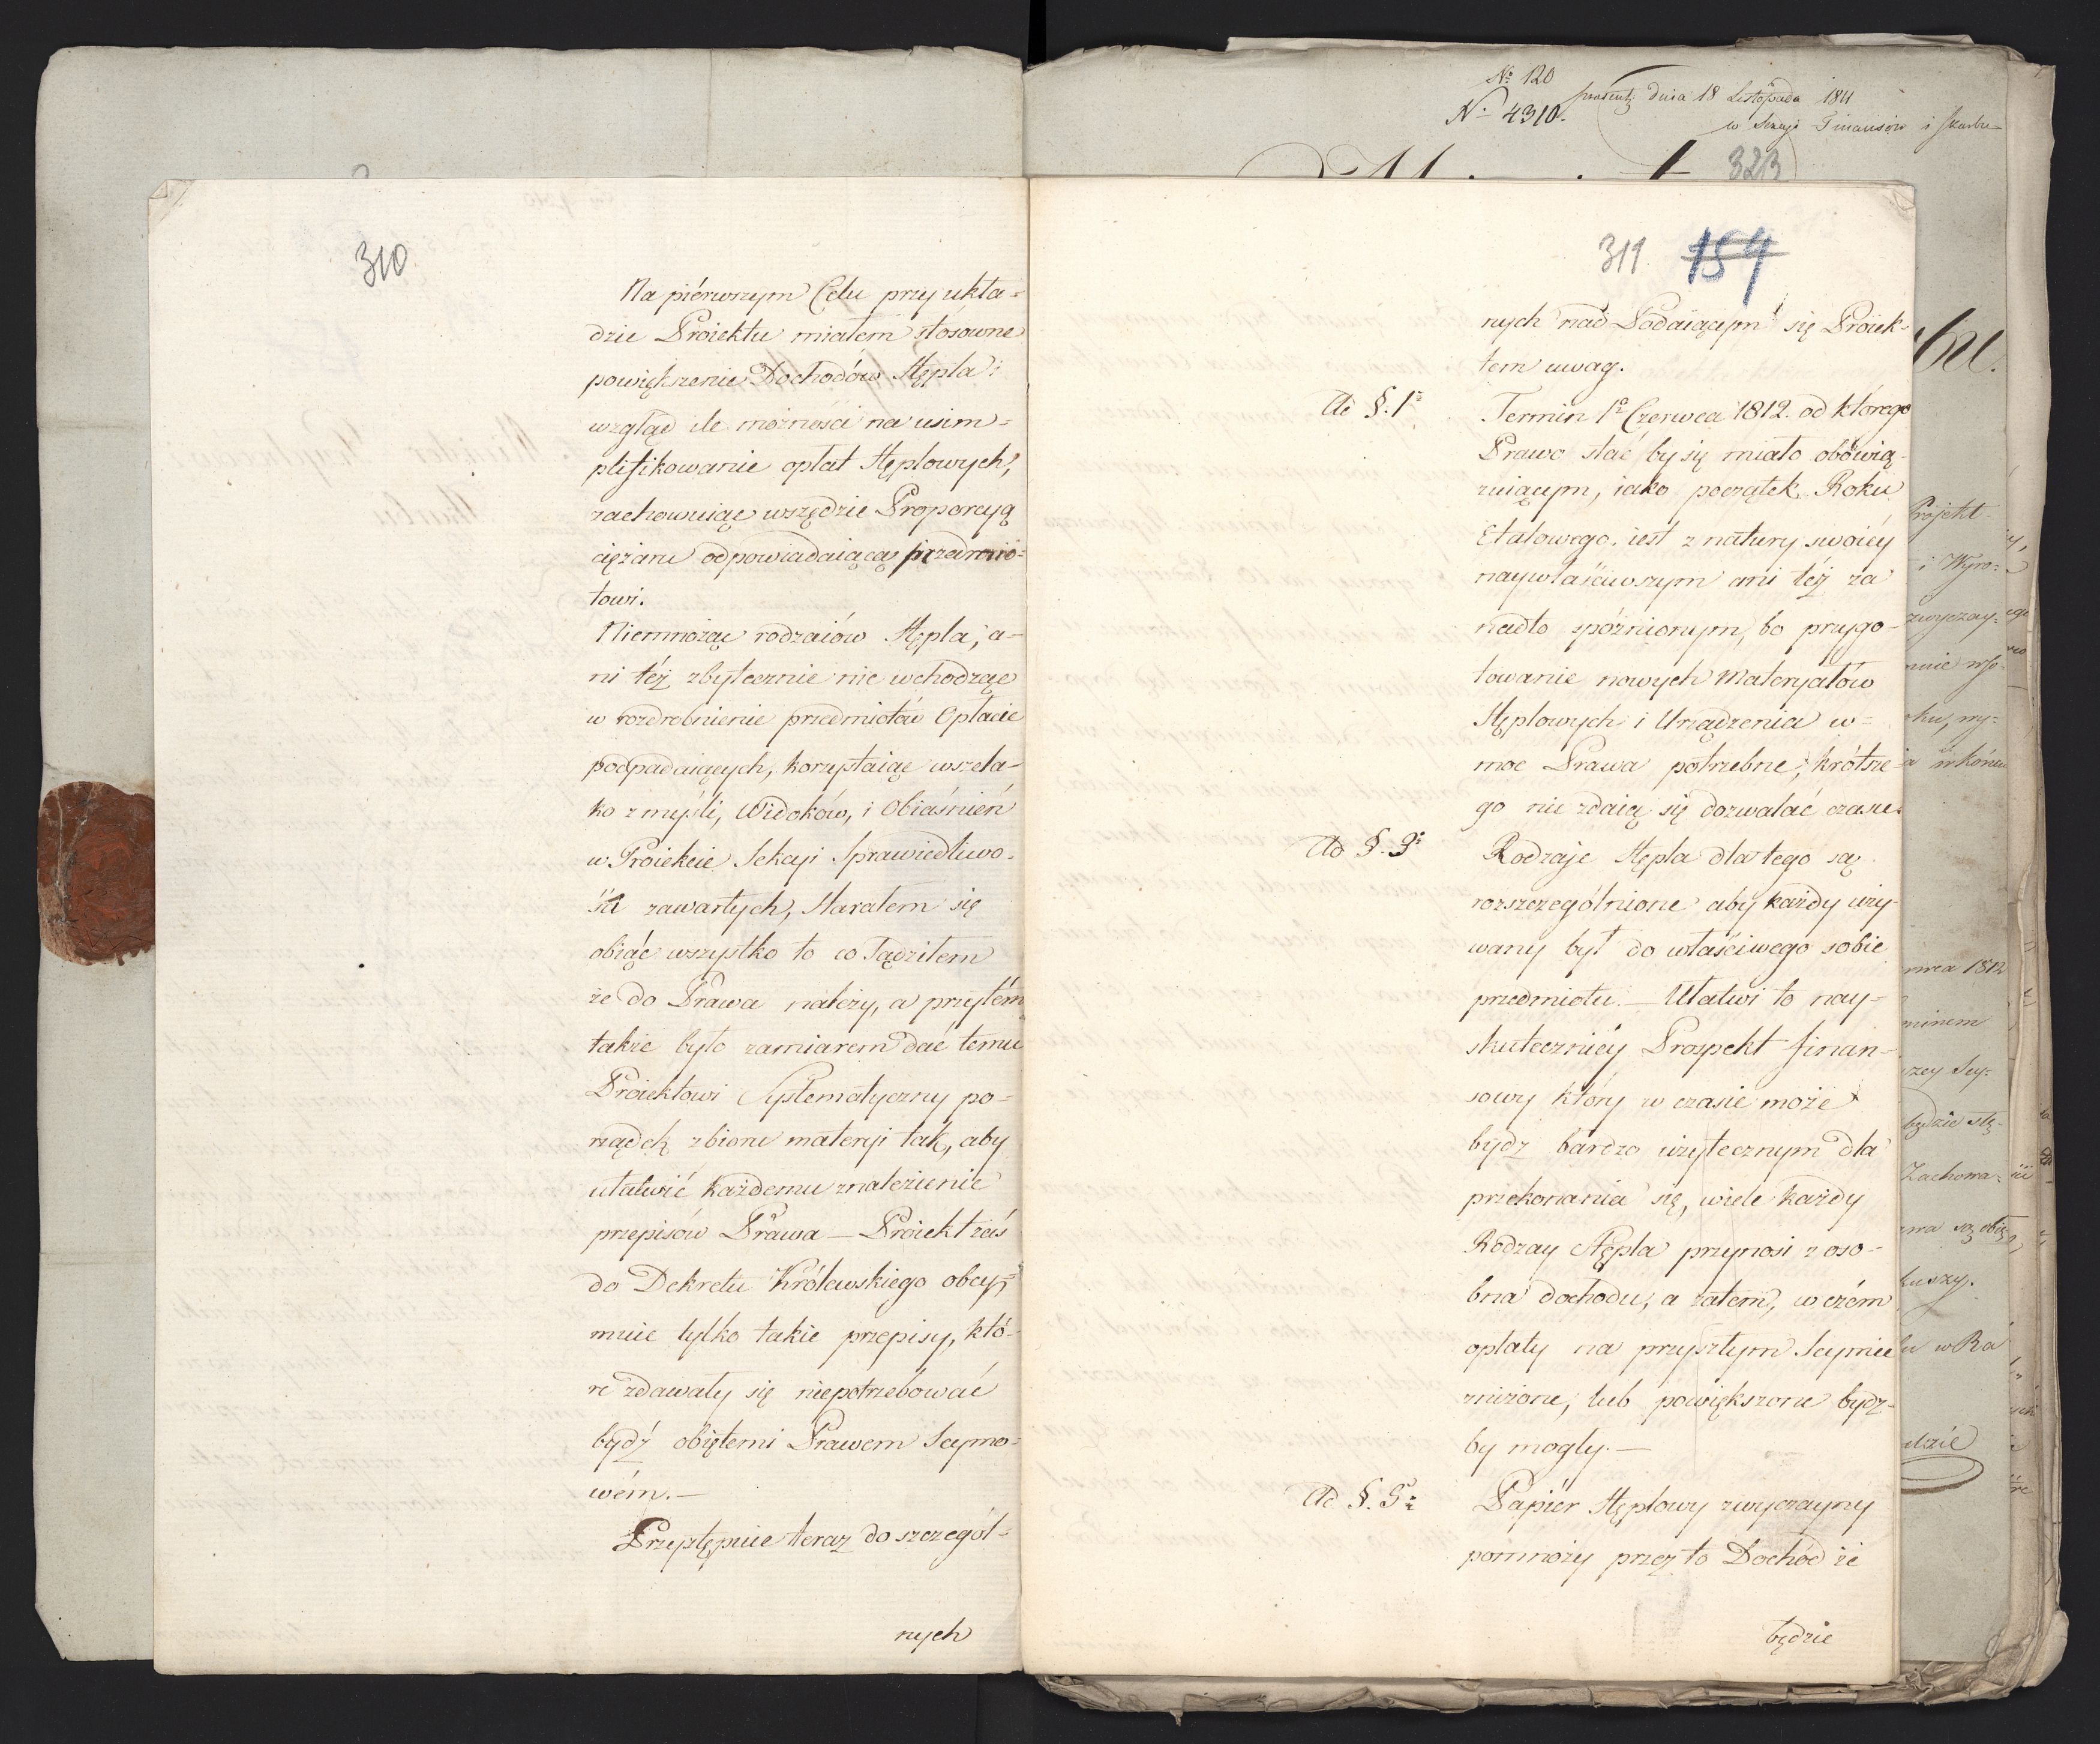 310
Na piérwszym Celu przy ukła=
dzie Proiektu miałem stósowne
powiększenie Dochodów Stępla i
wzgląd ile możności na usim=
plifikowanie opłat Stęplowych,
zachowuiąc wszędzie Proporcyą
ciężaru odpowiadaiącą przedmio=
towi.
Niemnożąc rodzaiów Stępla, a=
ni téż zbytecznie nie wchodząc
w rozdrobnienie przedmiotów Opłacie
podpadaiących, korzystaiąc wszela=
ko z myśli, Widoków, i Obiaśnień
w Proiekcie Sekcyi Sprawiedliwo=
ści zawartych, Starałem się
obiąć wszystko to co Sądziłem
że do Prawa należy, a przytém
także było zamiarem dać temu
Proiektowi Systematyczny po=
rządek zbioru materyi tak, aby
ułatwić każdemu znalezienie
przepisów Prawa — Proiekt zaś
do Dekretu Królewskiego obey=
muie tylko takie przepisy, któ=
re zdawały się niepotrzebować
bydź obiętemi Prawem Seymo=
wém. —
Przystępuie teraz do szczegól=
nych
No 120
No 4310.
prasent: dnia 18 Listopada 1811
w Sekcyi Finansów i Skarbu
323
311 154
nych nad Podaiącym się Proiek=
tem uwag.
Ad §. 1o
Termin 1o Czerwca 1812. od którego
Prawo stać by się miało obowią=
zuiącym, iako początek Roku
Etatowego, iest z natury swoiéy
naywłaściwszym ani téż za
nadto spóźnionym, bo przygo=
towanie nowych Materyałów
Stęplowych i Urządzenia w=
moc Prawa potrzebne, krótsze=
go nie zdaią się dozwalać czasu.
Ad §. 3o
Rodzaje Stępla dla tego są
rozszczególnione aby każdy uży=
wany był do właściwego sobie
przedmiotu. — Ułatwi to nay=
skuteczniéy Prospekt finan=
sowy który w czasie może
bydź bardzo użytecznym dla
przekonania się, wiele każdy
Rodzay Stępla przynosi z oso=
bna dochodu, a zatem, w czém
opłaty na przyszłym Seymie
zniżone, lub powiększone bydź=
by mogły. —
Ad §. 5o
Papiér Stęplowy zwyczayny
pomnoży przez to Dochód że
będzie
Projekt
i Wyro=
zwyczay=
1812
minem
szey Sey=
będzie stę=
Zachowa=
w Ra